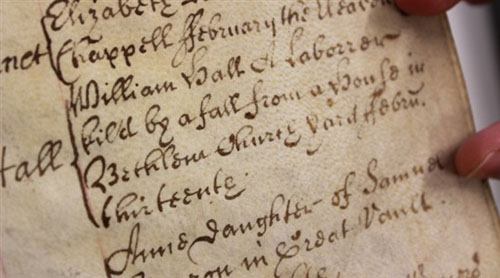 Elizabeth
Chappell ffebruary the
William Hall A Laborrer
kil'd by a fall from a House in
Bethlem Church yard ffebru.
thirteenth.
Hall
Anne daughter of Samuel
in Great Vault.